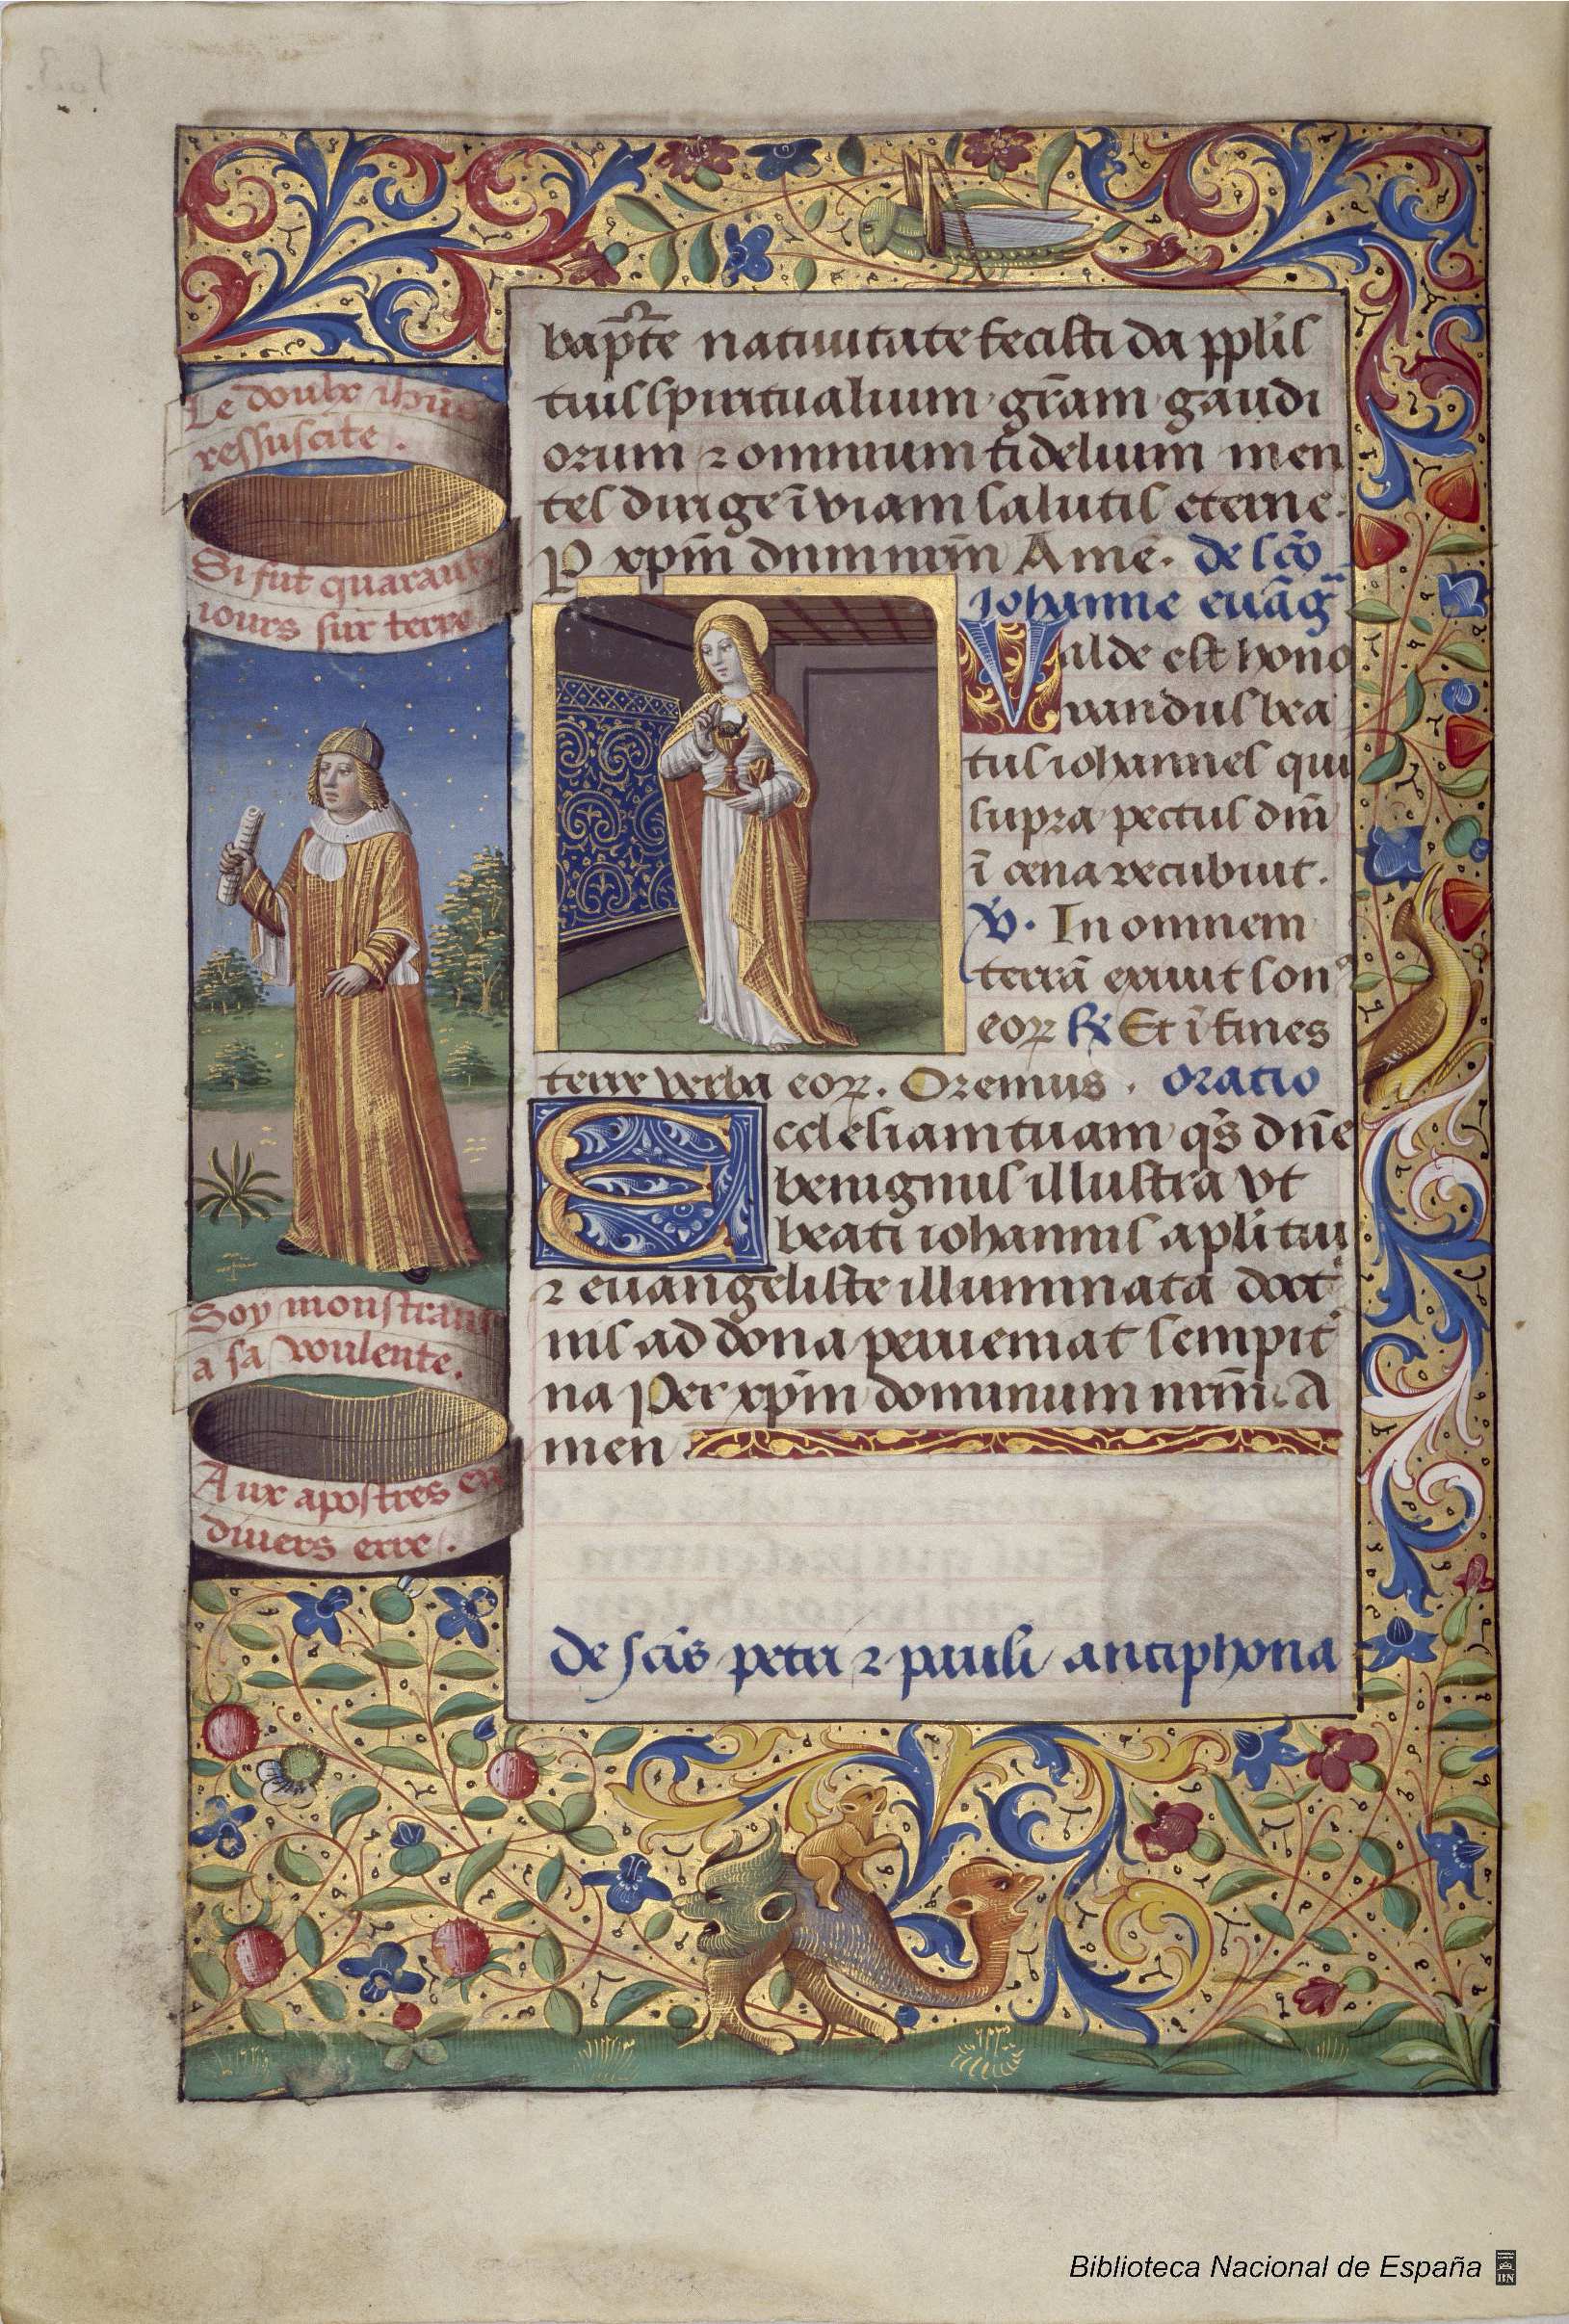 Le doulx ihūs
ressuscite.
Si fut quarante
iours sur terre
Soy monstrant
a sa voulente.
Aux apostres en
divers erre.
bap̄te natiuitate fecisti da pplis
tuis spiritualium gr̄am gaudi
orum ⁊ omnium fidelium men
tes dirige ī viam salutis eterne.
P xp̄m dnm nrm̄ Ame. de sc̄o
Iohanne euāg
Valde est hono
randus bea
tus iohannes qui
supra pectus dn̄i
ī cena recubuit.
℣. In omnem
terrā exiuit son
eoꝝ ℟ Et ī fines
terre verba eoꝝ. Oremus. oratio
Ecclesiam tuam qs̄ dn̄e
benignus illustra vt
beati iohannis apl̄i tui
⁊ euangeliste illuminata doct
nis ad dona perueniat sempit
na Per xp̄m dominum nrm̄. A
men
de scīs petri ⁊ pauli antiphona
Biblioteca Nacional de España
BN